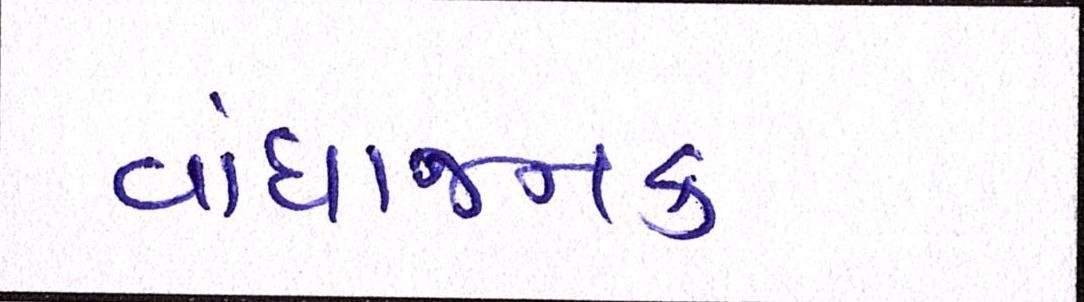 વાંધાજનક